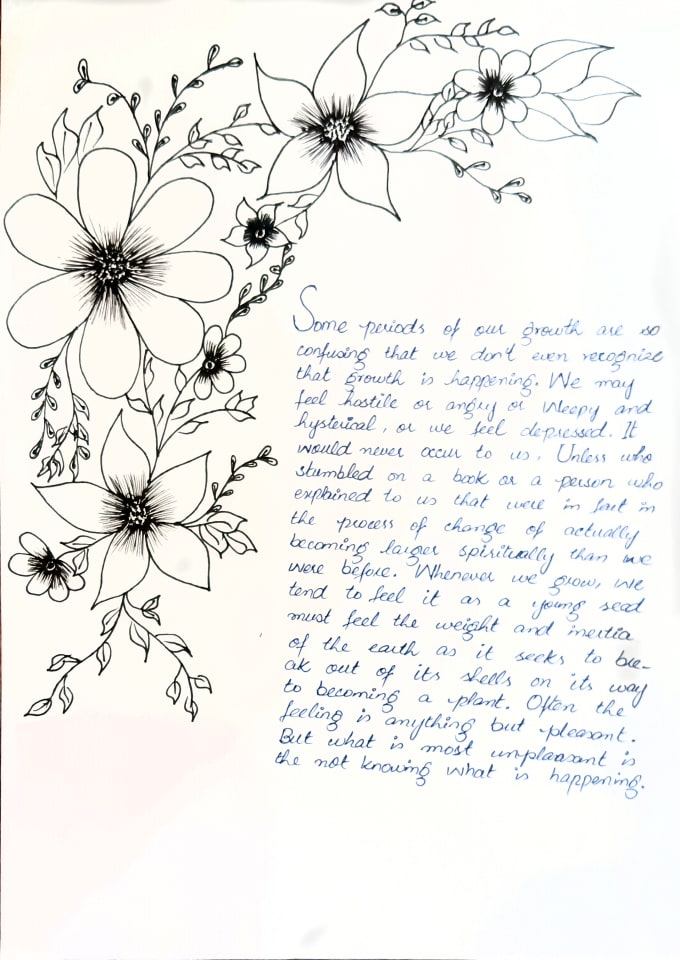 Some periods of our growth are so
confusing that we don't even recognize
that growth is happening. We may
feel hostile or angry or weepy and
hysterical, or we feel depressed. It
would never occur to us. Unless who
stumbled on a book or a person who
explained to us that were in fact in
the process of change of actually
becoming larger spiritually than we
were before. Whenever we grow, we
tend to feel it as a young seed
must feel the weight and inertia
of the earth as it seeks to bre-
ak out of its shells on its way
to becoming a plant. Often the
feeling is anything but pleasant.
But what is most unpleasant is
the not knowing what is happening.